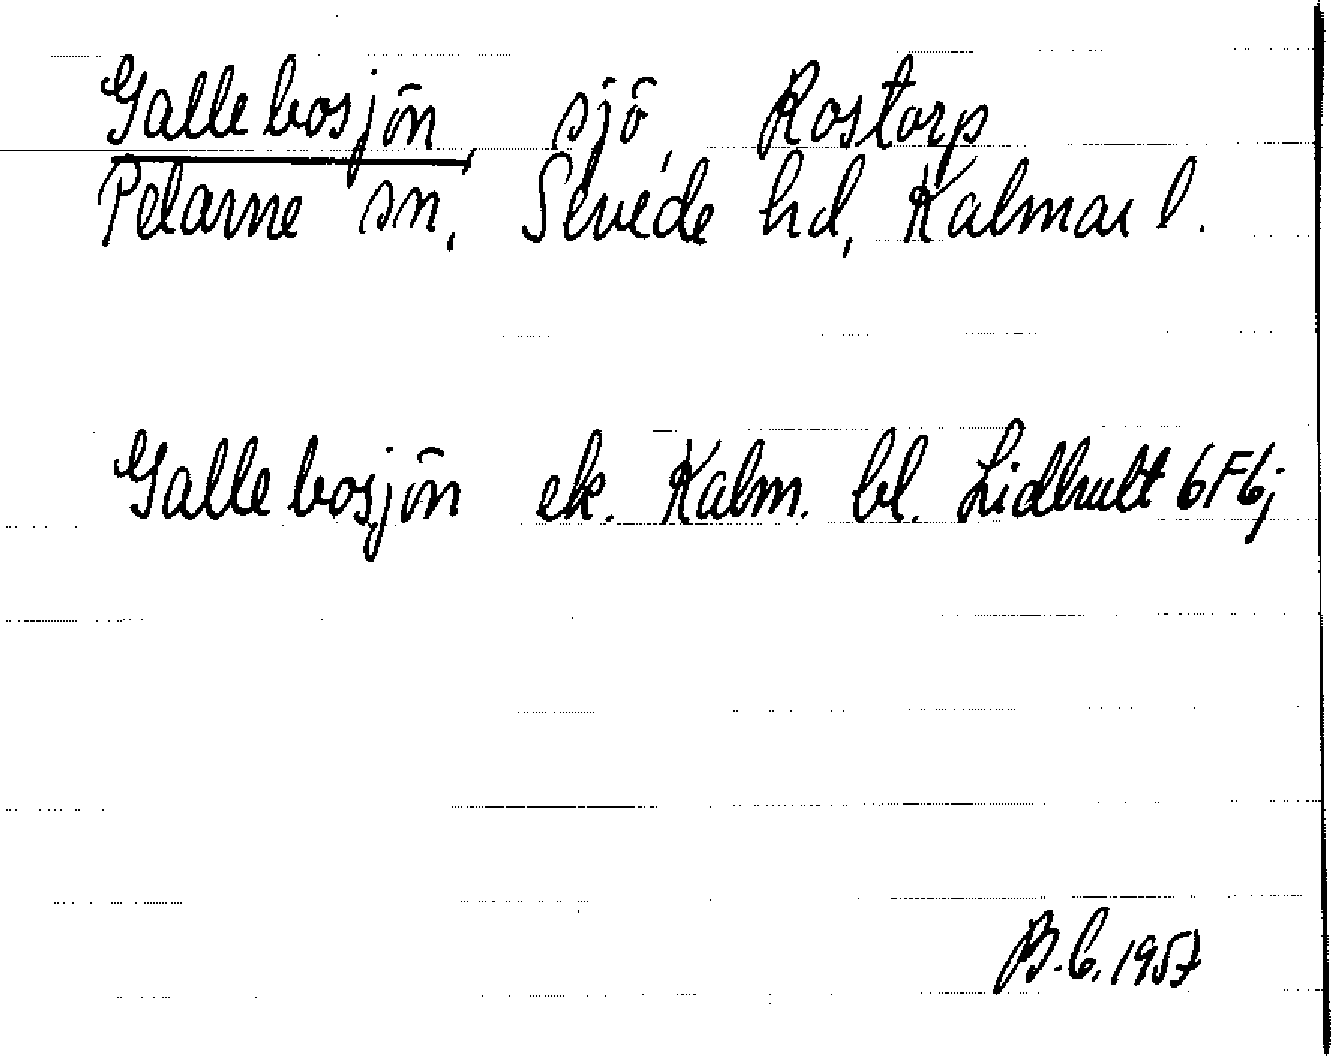 Gallebosjön, sjö, Rostorp
Pelarne sn, Sevede hd, Kalmar l.
Gallebosjön ek. Kalm. bl. Lidhult 6F6j
B.C. 1957